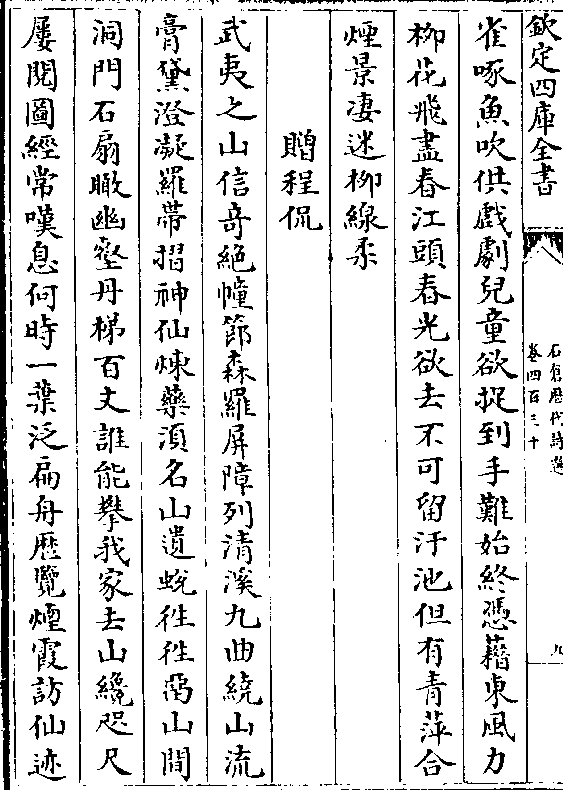 欽定四庫全書
石倉歴代詩選
卷四百三十
九
雀啄魚吹供戲劇兒童欲捉到手難始終憑藉東風力
柳花飛盡春江頭春光欲去不可留汙池但有青萍合
煙景凄迷柳線柔
贈程侃
武夷之山信奇絶幢節森羅屏障列清溪九曲繞山流
膏黛澄凝羅帶摺神仙煉藥湏名山遺蛻徃徃藏山間
洞門石扇瞰幽壑丹梯百丈誰能攀我家去山纔咫尺
屢閱圖經常嘆息何時一葉泛扁舟歴覽煙霞訪仙迹